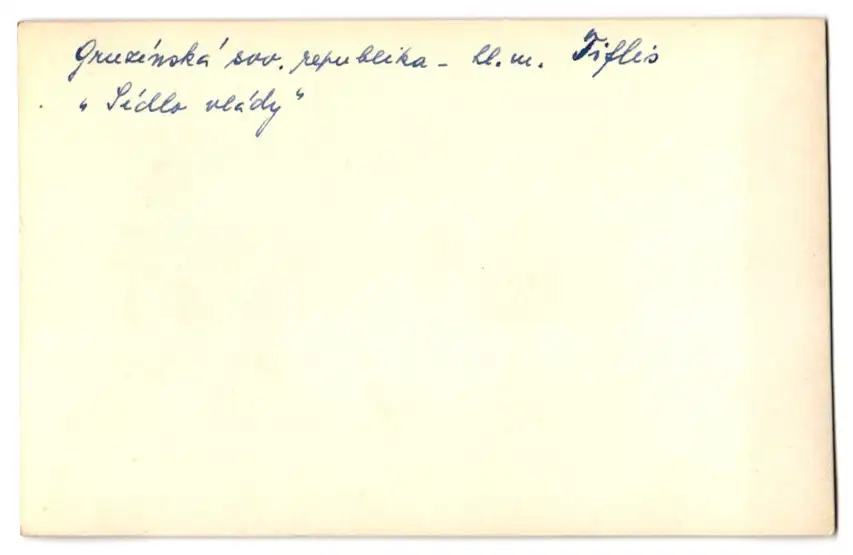 Gruzínská sov. republika - hl. m. Tiflis
"Sídlo vlády"